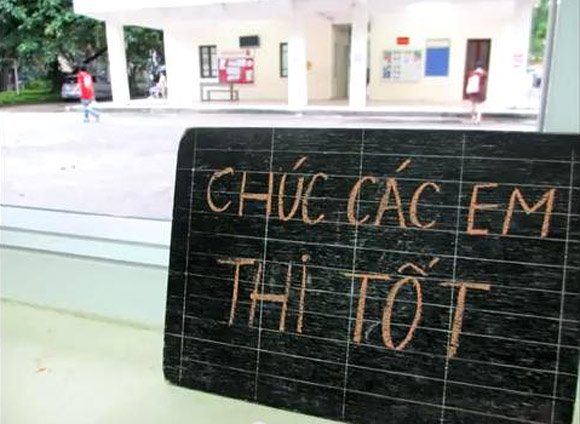 CHÚC CÁC EM
THI TỐT